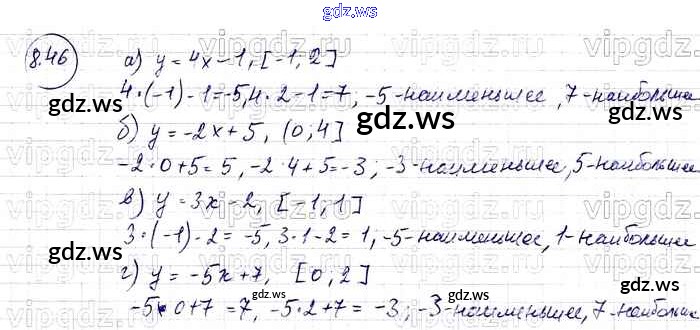 gdz.ws
8.46
а) y = 4x - 1, [-1, 2]
4·(-1) - 1 = -5, 4·2 - 1 = 7, -5 - наименьшее, 7 - наибольшее
б) y = -2x + 5, (0; 4]
-2·0 + 5 = 5, -2·4 + 5 = -3; -3 - наименьшее, 5 - наибольшее
в) y = 3x - 2, [-1, 1]
3·(-1) - 2 = -5, 3·1 - 2 = 1, -5 - наименьшее, 1 - наибольшее
г) y = -5x + 7, [0, 2]
-5·0 + 7 = 7, -5·2 + 7 = -3, -3 - наименьшее, 7 - наибольш
gdz.ws
gdz.ws
gdz.ws
gdz.ws
gdz.ws
gdz.ws
vipgdz.ws
vipgdz.ws
vipgdz.ws